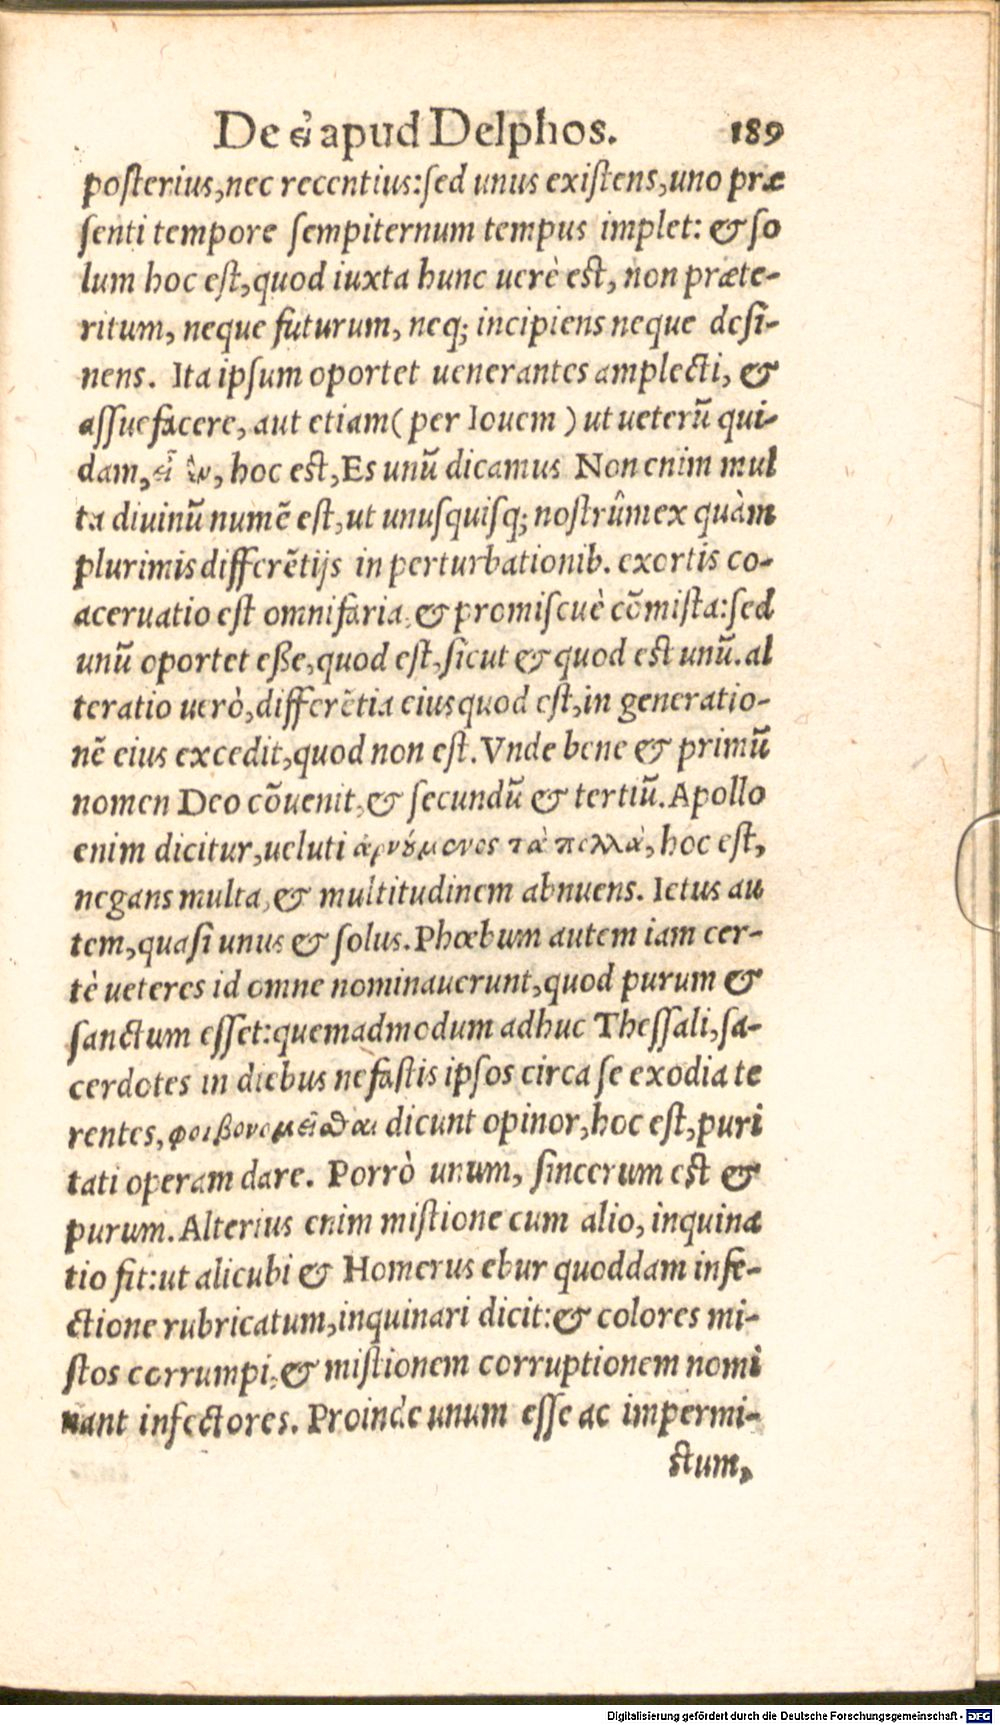 De εἰ apud Delphos. 189
posterius, nec recentius: sed unus existens, uno præ
senti tempore sempiternum tempus implet: & so
lum hoc est, quod iuxta hunc uerè est, non præte-
ritum, neque futurum, neq; incipiens neque desi-
nens. Ita ipsum oportet uenerantes amplecti, &
assuefacere, aut etiam ( per Iouem ) ut ueterũ qui-
dam, εἶ ἓν, hoc est, Es unũ dicamus Non enim mul
ta diuinũ numẽ est, ut unusquisq; nostrûm ex quàm
plurimis differẽtijs in perturbationib. exortis co-
aceruatio est omnifaria, & promiscuè cõmista: sed
unũ oportet eße, quod est, sicut & quod est unũ. al
teratio uerò, differẽtia eius quod est, in generatio-
nẽ eius excedit, quod non est. Vnde bene & primũ
nomen Deo cõuenit, & secundũ & tertiũ. Apollo
enim dicitur, ueluti ἀρνούμενος τὰ πολλὰ, hoc est,
negans multa, & multitudinem abnuens. Ietus au
tem, quasi unus & solus. Phœbum autem iam cer-
tè ueteres id omne nominauerunt, quod purum &
sanctum esset: quemadmodum adhuc Thessali, sa-
cerdotes in diebus nefastis ipsos circa se exodia te
rentes, φοιβονομεῖσθαι dicunt opinor, hoc est, puri
tati operam dare. Porrò unum, sincerum est &
purum. Alterius enim mistione cum alio, inquina
tio fit: ut alicubi & Homerus ebur quoddam infe-
ctione rubricatum, inquinari dicit: & colores mi-
stos corrumpi, & mistionem corruptionem nomi
nant infectores. Proinde unum esse ac impermi-
ctum,
Digitalisierung gefördert durch die Deutsche Forschungsgemeinschaft - DFG